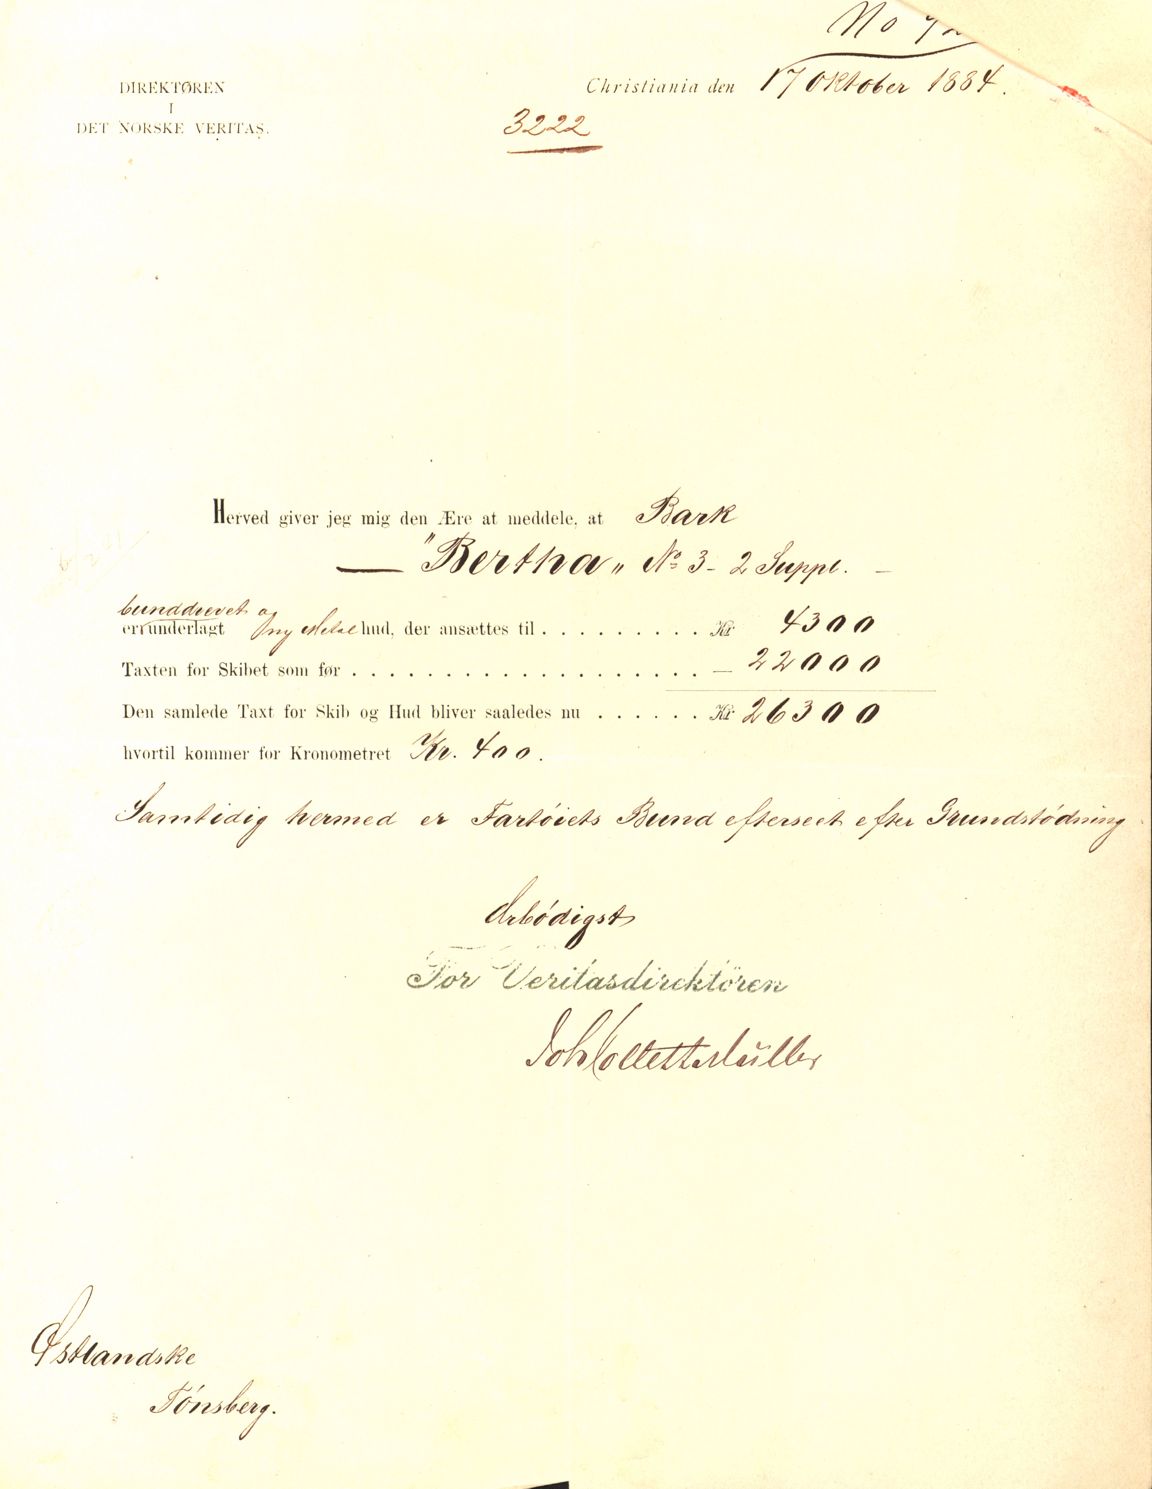 No
DIREKTØREN
I
DET NORSKE VERITAS.
Christiania den 17 Oktober 1884.
3222
Herved giver jeg mig den Ære at meddele, at Bark
— "Bertha" No 3 - 2 Suppl. —
bunddrevet og
er underlagt ny Metal hud, der ansættes til . . . . . . . . . . Kr 4300
Taxten for Skibet som før . . . . . . . . . . . . . . . . . . . . — 22000
Den samlede Taxt for Skib og Hud bliver saaledes nu . . . . . . Kr 26300
hvortil kommer for Kronometret Kr. 400.
Samtidig hermed er Fartöiets Bund efterseet efter Grundstödning
Ærbödigst
For Veritasdirektören
Joh Collett Müller
Østlandske
Tönsberg.